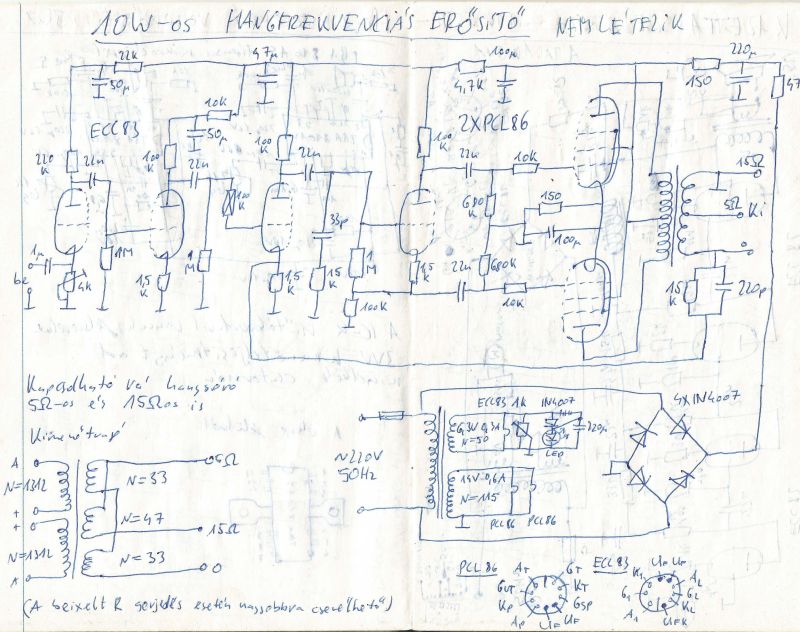 10W-os HANGFREKVENCIÁS ERŐSÍTŐ NEM LÉTEZIK
22K
50µ
47µ
100µ
4,7K
220µ
150
47
ECC83
10K
50µ
2XPCL86
220K
22n
100K
22n
100K
100K
22n
100K
22n
10K
15Ω
5Ω
Ki
680K
150
100µ
33p
1µ
be
4K
1M
1,5K
1M
1,5K
15K
1M
100K
1,5K
22n
680K
10K
15K
220p
Kapcsolható rá hangszóró
5Ω-os és 15Ωos is
Kimenőtrafó
A
N=1312
+
+
N=1312
A
N=33
N=47
N=33
5Ω
15Ω
0
~220V
50Hz
ECC83 1K 1N4007
6,3V 0,3A
N=50
LED
220µ
4X1N4007
14V-0,6A
N=115
PCL86 PCL86
PCL86
AT
GT
KT
GSP
UF
UF
AP
KP
ECC83
UF UF
K1
G1
A1
A2
G2
K2
UFK